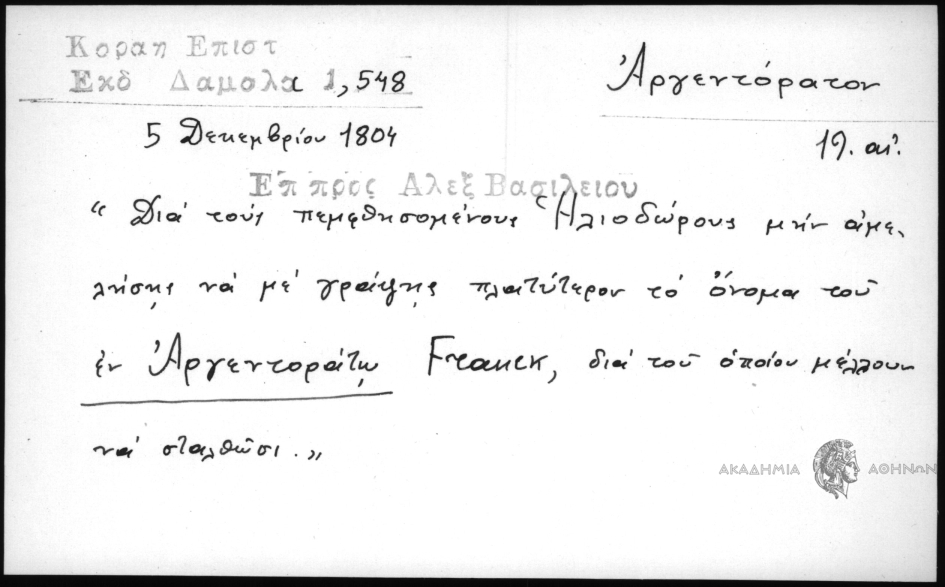 Κοραη Επιστ
Εκδ Δαμαλα 1,548
Ἀργεντόρατον
5 Δεκεμβρίου 1804
19. αἰ.
Επ προς Αλεξ Βασιλειου
“ Διά τούς πεμφθησομένους Ἡλιοδώρους μήν ἀμε-
λήσῃς νά μέ γράψῃς πλατύτερον τό ὄνομα τοῦ
ἐν Ἀργεντοράτῳ Franck, διά τοῦ ὁποίου μέλλουν
νά σταλθῶσι.„
ΑΚΑΔΗΜΙΑ ΑΘΗΝΩΝ